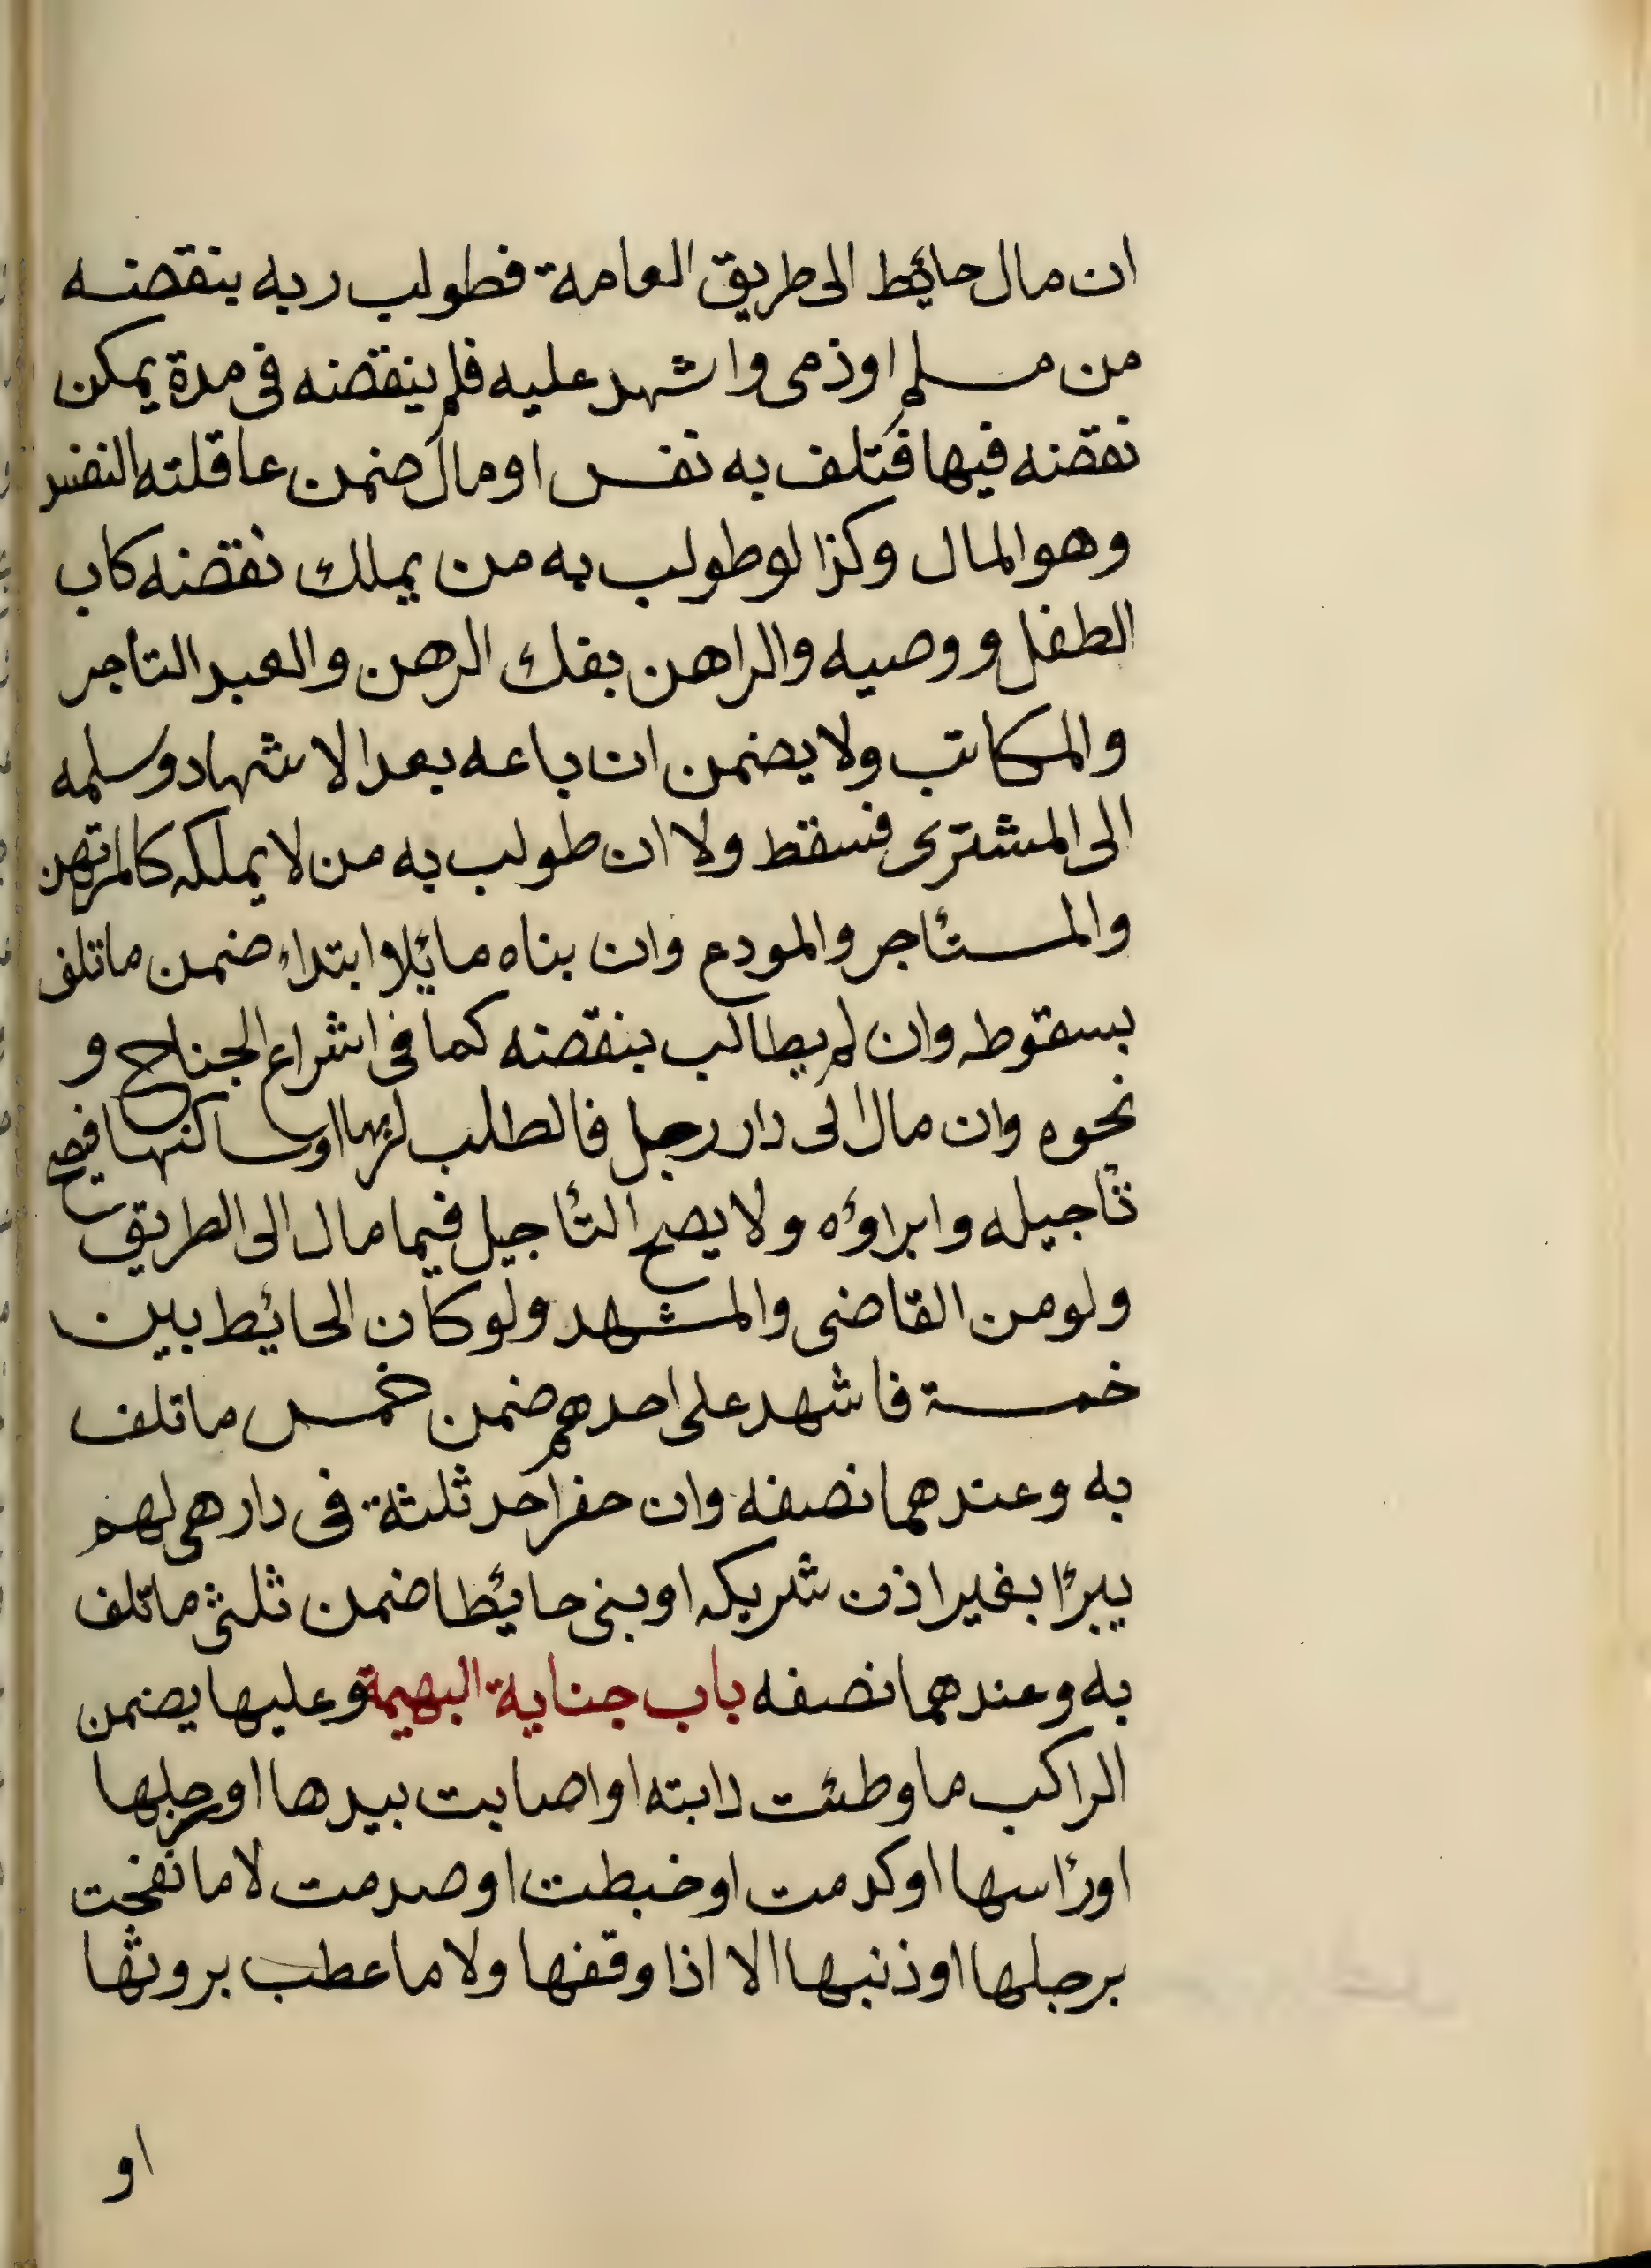 ان مال حائيط الى طريق العامة فطولب ربه بنقضه
من مسلم اوذمى واشهد عليه فلم ينقضه فى مدة يمكن
نقضه فيها فتلف به نفس او مال ضمن عاقلته النفس
وهو المال وكذا لو طولب به من يملك نقضه كاب
الطفل ووصيه والراهن بفك الرهن والعبد التاجر
والمكاتب ولا يضمن ان باعه بعد الاشهاد وسلمه
الى المشترى فسقط ولا ان طولب به من لا يملكه كالمرتهن
والمستأجر والمودع وان بناه مائلا ابتداء ضمن ماتلف
بسقوطه وان لم يطالب بنقضه كما فى اشراع الجناح و
نحوه وان مال الى دار رجل فالطلب لربها او ساكنها فيصح
تأجيله وابراؤه ولا يصح التأجيل فيما مال الى الطريق
ولو من القاضى والمشهد ولو كان الحائيط بين
خمسة فاشهد على احدهم ضمن خمس ماتلف
به وعندهما نصفه وان حفر احد ثلثة فى دار هى لهم
بيرًا بغير اذن شريكه او بنى حائيطا ضمن ثلثى ماتلف
به وعندهما نصفه باب جناية البهيمة وعليها يضمن
الراكب ما وطئت دابته او اصابت بيدها او رجلها
او رأسها او كدمت او خبطت او صدمت لا ما نفحت
برجلها او ذنبها الا اذا وقفها ولا ما عطب بروثها
او